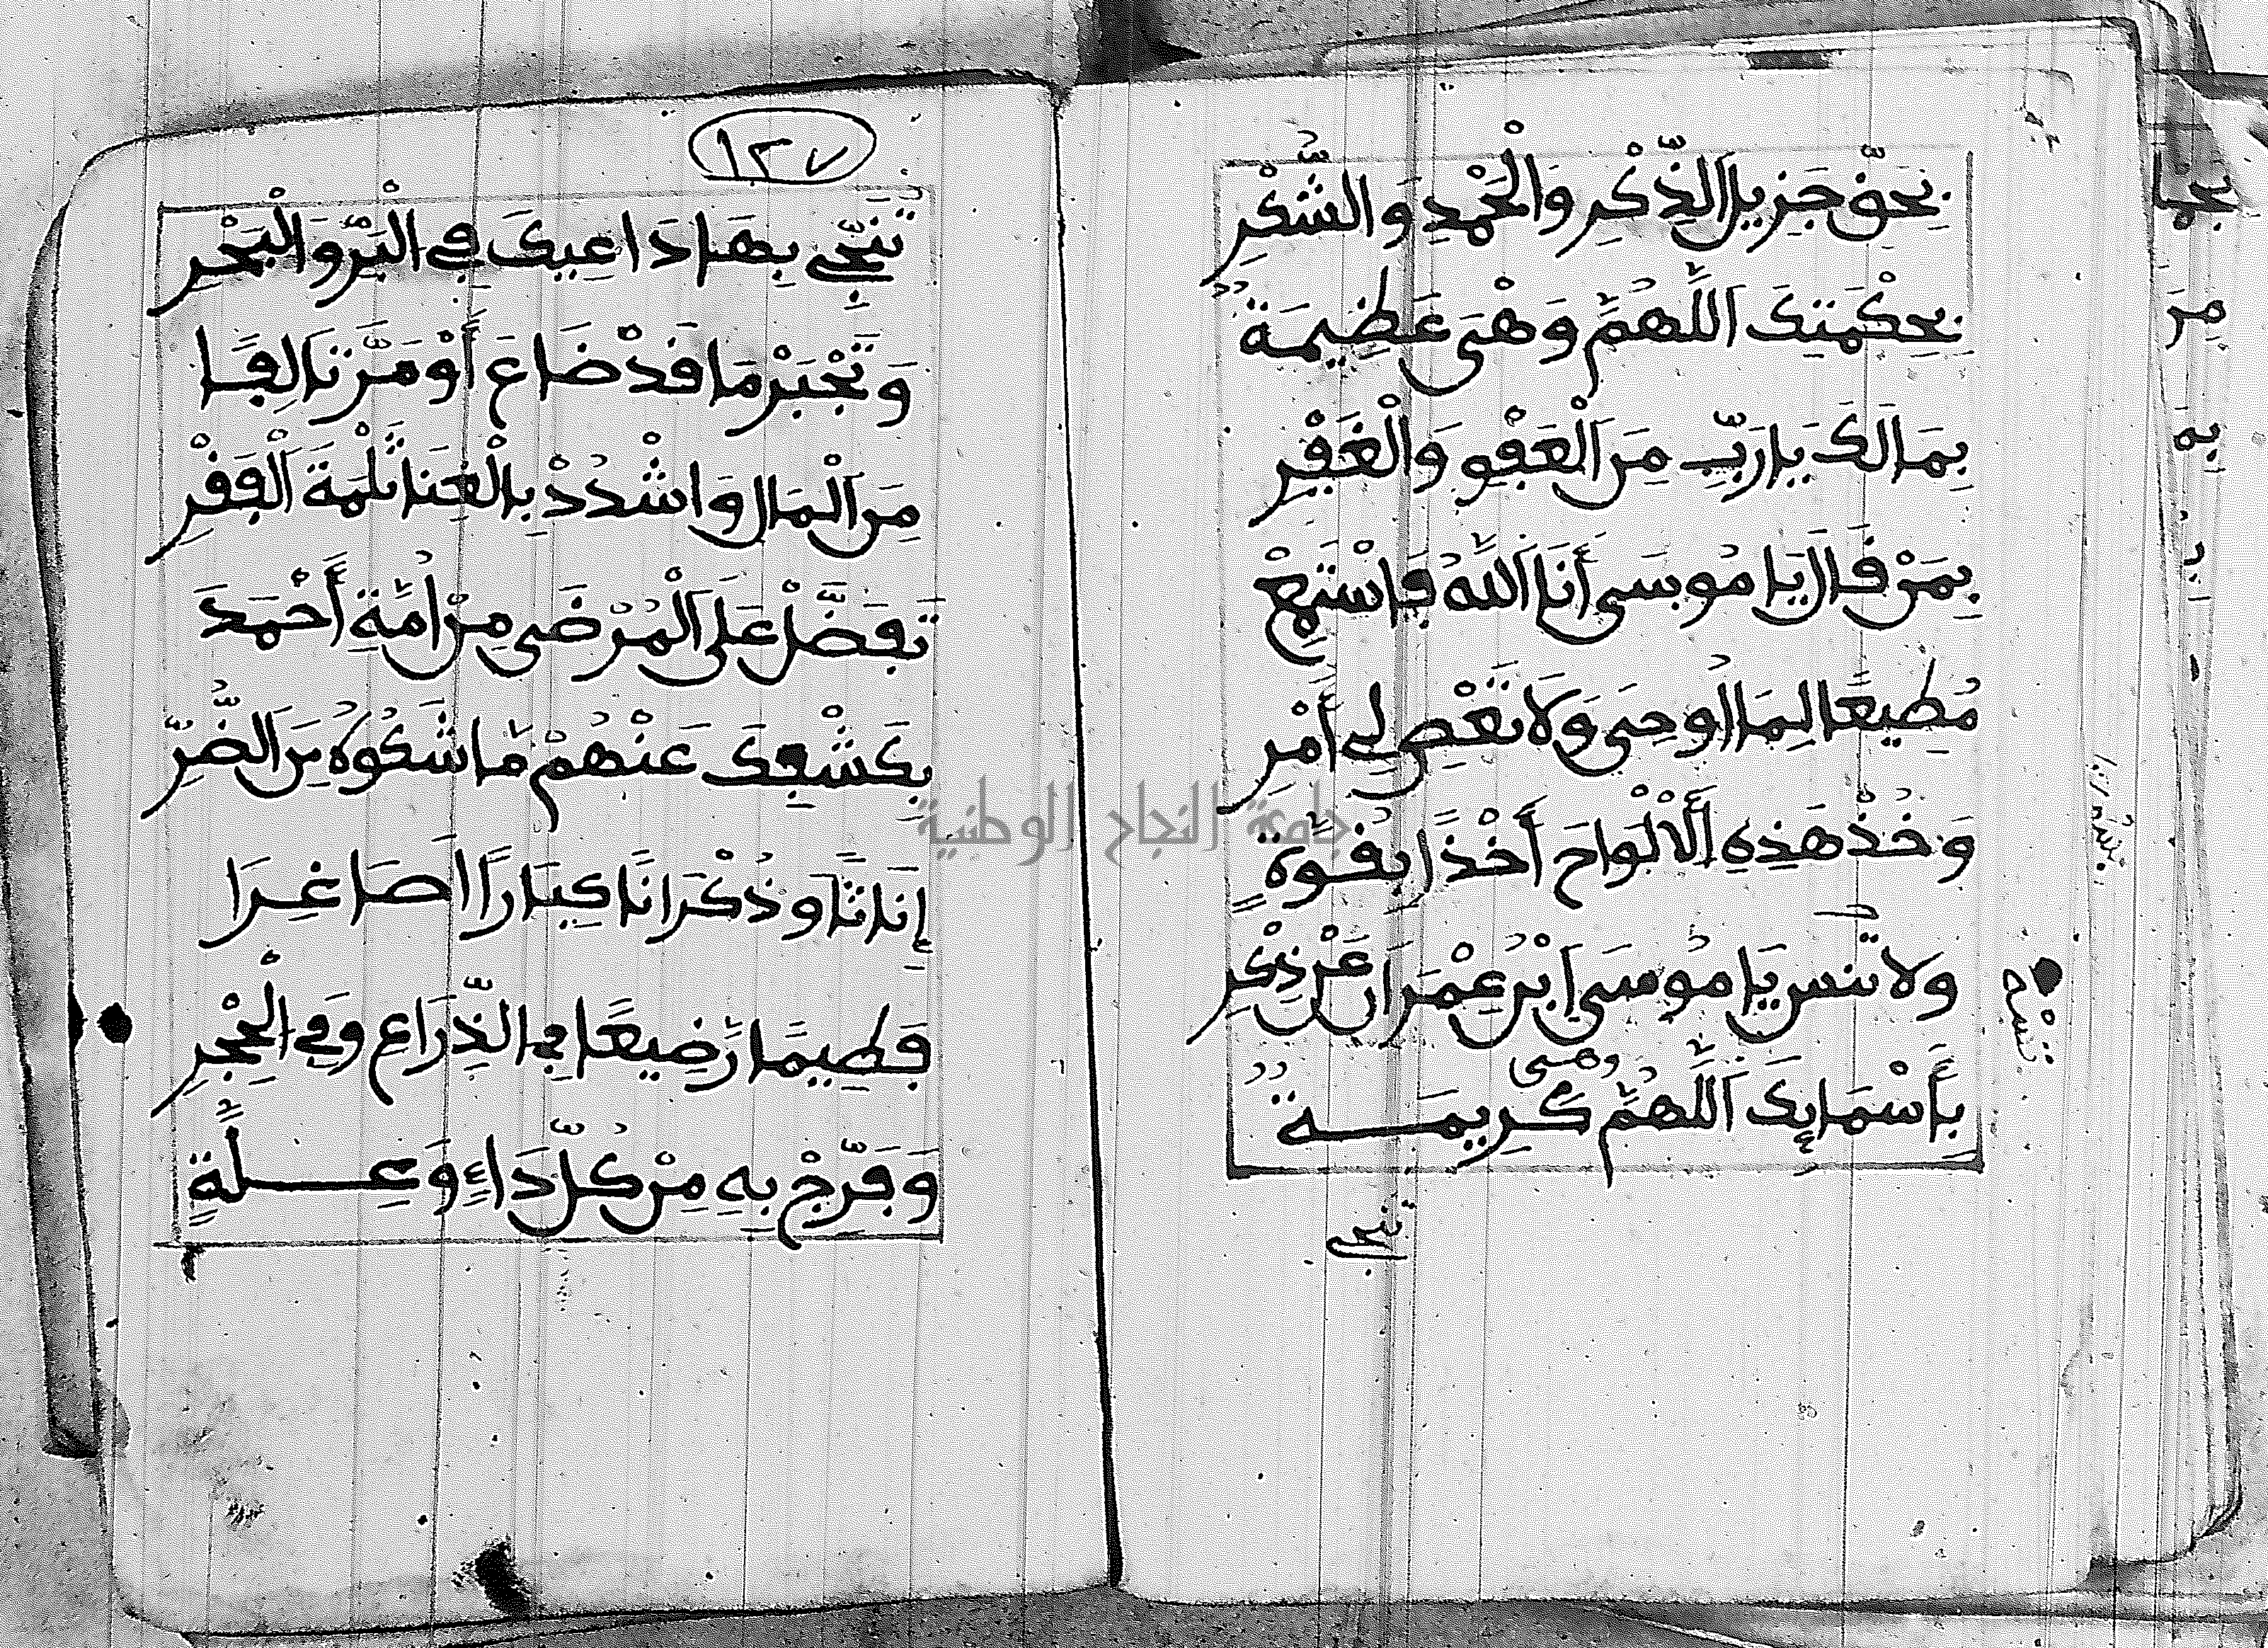 بِحَقِّ جَزِيلِ الذِّكْرِ وَالْحَمْدِ وَالشُّكْرِ
بِحِكْمَتِكَ اللَّهُمَّ وَهْيَ عَظِيمَةٌ
بِمَا لَكَ يَا رَبِّ مِنَ الْعَفْوِ وَالْغَفْرِ
بِمَنْ قَالَ يَا مُوسَى أَنَا اللَّهُ فَاسْتَمِعْ
مُطِيعًا لِمَا أُوحِي وَلَا تَعْصِ لِي أَمْرِ
وَخُذْ هَذِهِ الْأَلْوَاحَ أَخْذًا بِقُوَّةٍ
وَلَا تَنْسَ يَا مُوسَى ابْنَ عِمْرَانَ عَنْ ذِكْرِ
وهى
بِأَسْمَائِكَ اللَّهُمَّ كَرِيمَةٌ
تنجى
١٢٧
تُنَجِّي بِهَا دَاعِيكَ فِي الْبَرِّ وَالْبَحْرِ
وَتَجْبَرْ مَا قَدْ ضَاعَ أَوْ مَرَّ تَالِفًا
مِنَ الْمَالِ وَاشْدُدْ بِالْغِنَا ثَلْمَةَ الْفَقْرِ
تَفَضَّلْ عَلَى الْمَرْضَى مِنْ أُمَّةِ أَحْمَدَ
بِكَشْفِكَ عَنْهُمْ مَا شَكَوْهُ مِنَ الضُّرِّ
إِنَاثًا وَذُكْرَانًا كِبَارًا أَصَاغِرَا
فَطِيمًا رَضِيعًا فِي الذِّرَاعِ وَفِي الْحِجْرِ
وَفَرِّجْ بِهِ مِنْ كُلِّ دَاءٍ وَعِلَّةٍ
جامعة النجاح الوطنية